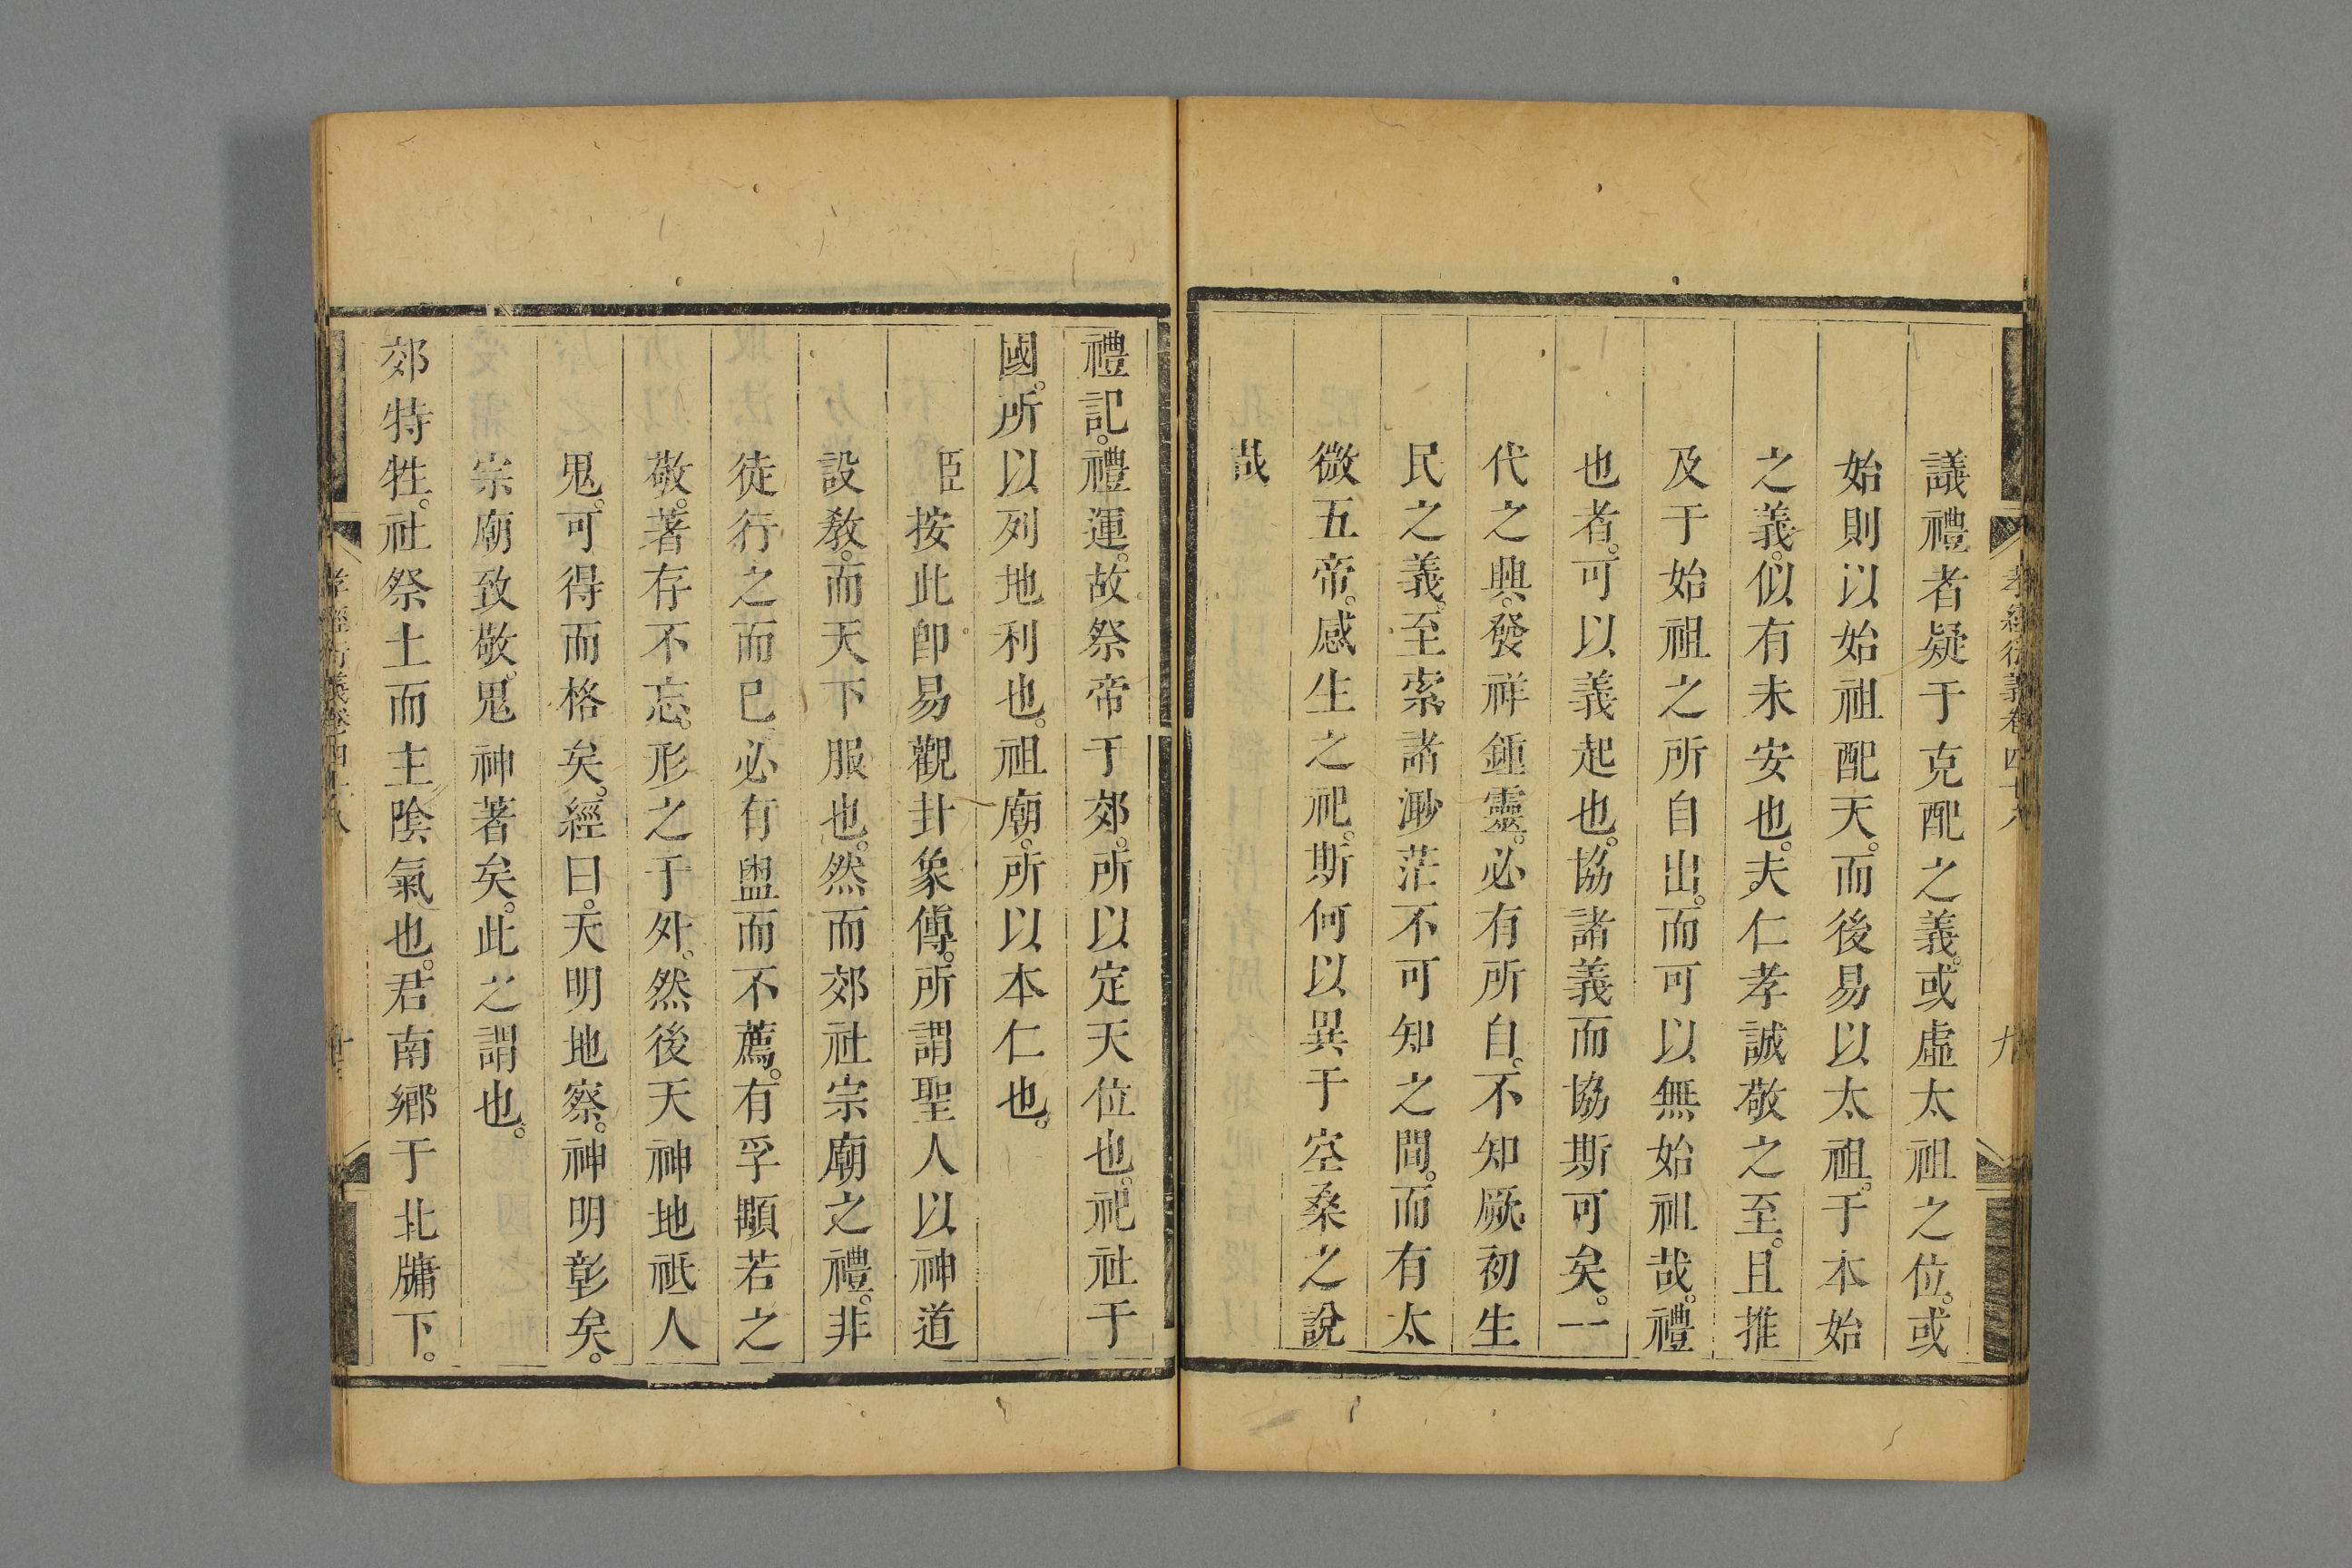 孝經衍義卷四十八 九
議禮者疑于克配之義。或虛太祖之位。或
始則以始祖配天。而後易以太祖。于本始
之義。似有未安也。夫仁孝誠敬之至。且推
及于始祖之所自出。而可以無始祖哉。禮
也者。可以義起也。協諸義而協斯可矣。一
代之興。發祥鍾靈。必有所自。不知厥初生
民之義。至索諸渺茫不可知之間。而有太
微五帝。感生之祀。斯何以異于空桑之說
哉
禮記。禮運。故祭帝于郊。所以定天位也。祀社于
國。所以列地利也。祖廟。所以本仁也。
臣按此卽易觀卦象傳。所謂聖人以神道
設教。而天下服也。然而郊社宗廟之禮。非
徒行之而已必有盥而不薦。有孚顒若之
敬。著存不忘。形之于外。然後天神地祇人
鬼。可得而格矣。經曰。天明地察。神明彰矣。
宗廟致敬。鬼神著矣。此之謂也。
郊特牲。社祭土而主陰氣也。君南鄉于北牖下。
孝經衍義卷四十八 十